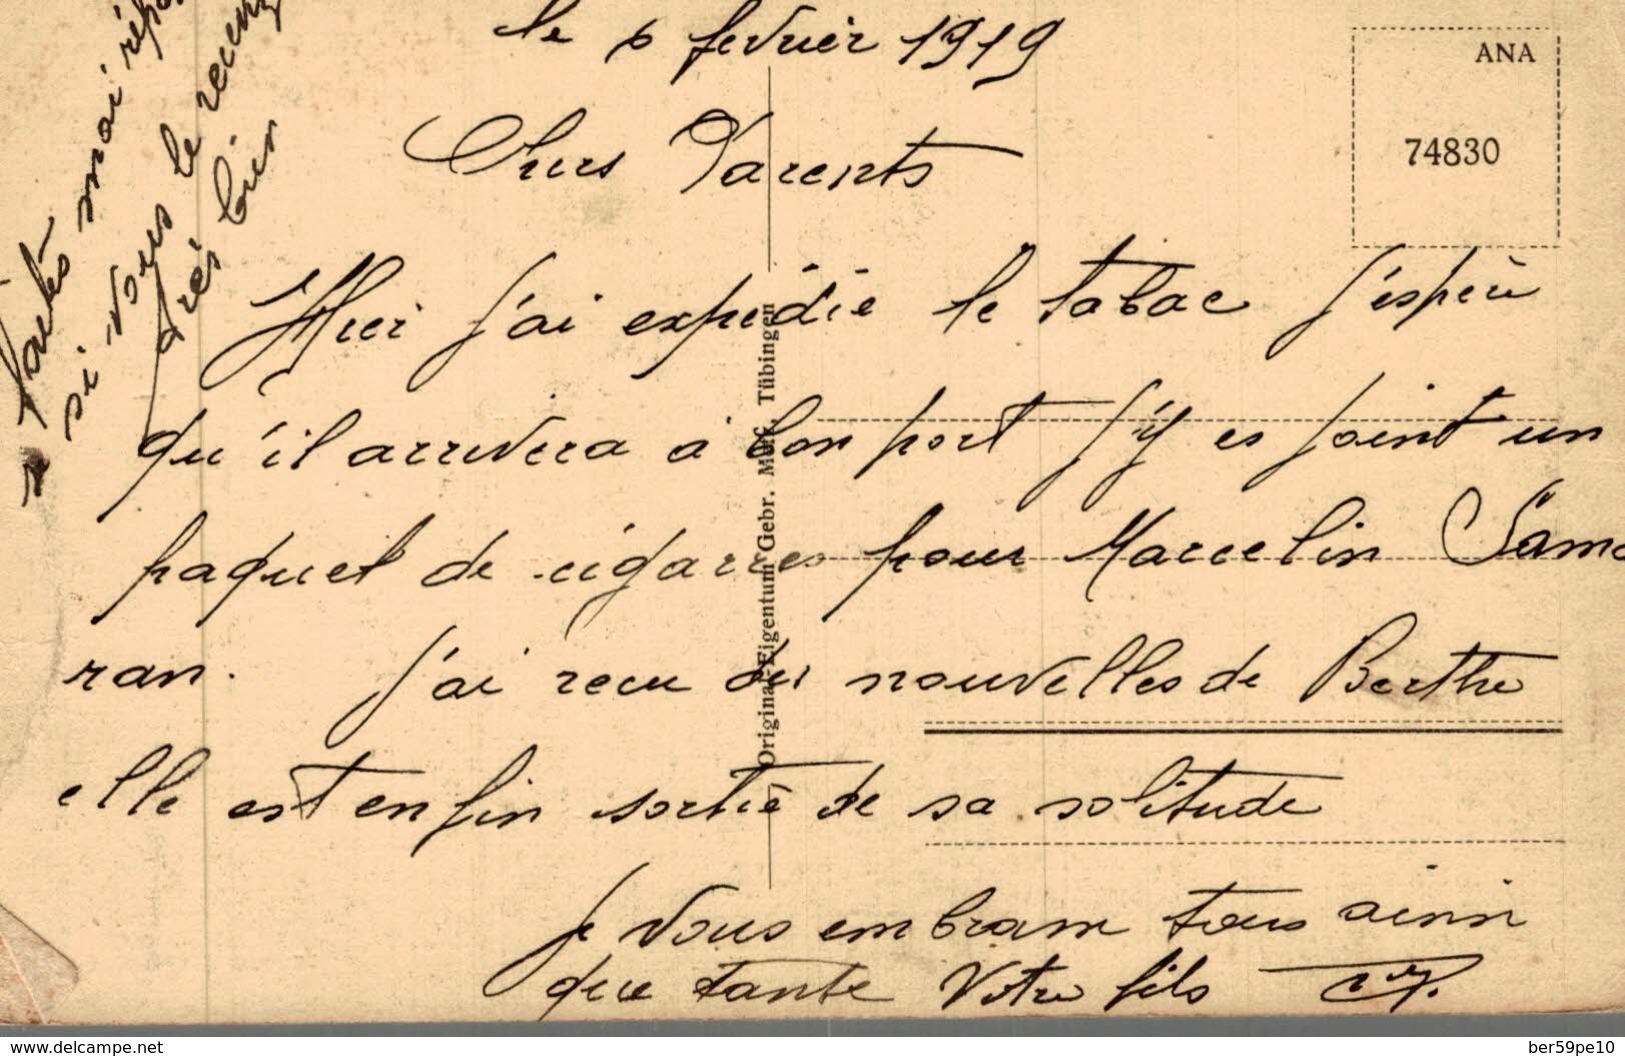 le 6 fevrier 1919
Chers Parents
Hier j'ai expedié le tabac j'espère
qu'il arrivera à bon port j'y es joint un
paquet de cigarres pour Marcelin Same
ran. J'ai recu des nouvelles de Berthe
elle est enfin sortie de sa solitude
Je vous embrasse tous ainsi
que tante Votre fils
faites moi
si vous le recevez
très bien
ANA
74830
Original-Eigentum Gebr. Metz, Tübingen
delcampe.net
ber59pe10